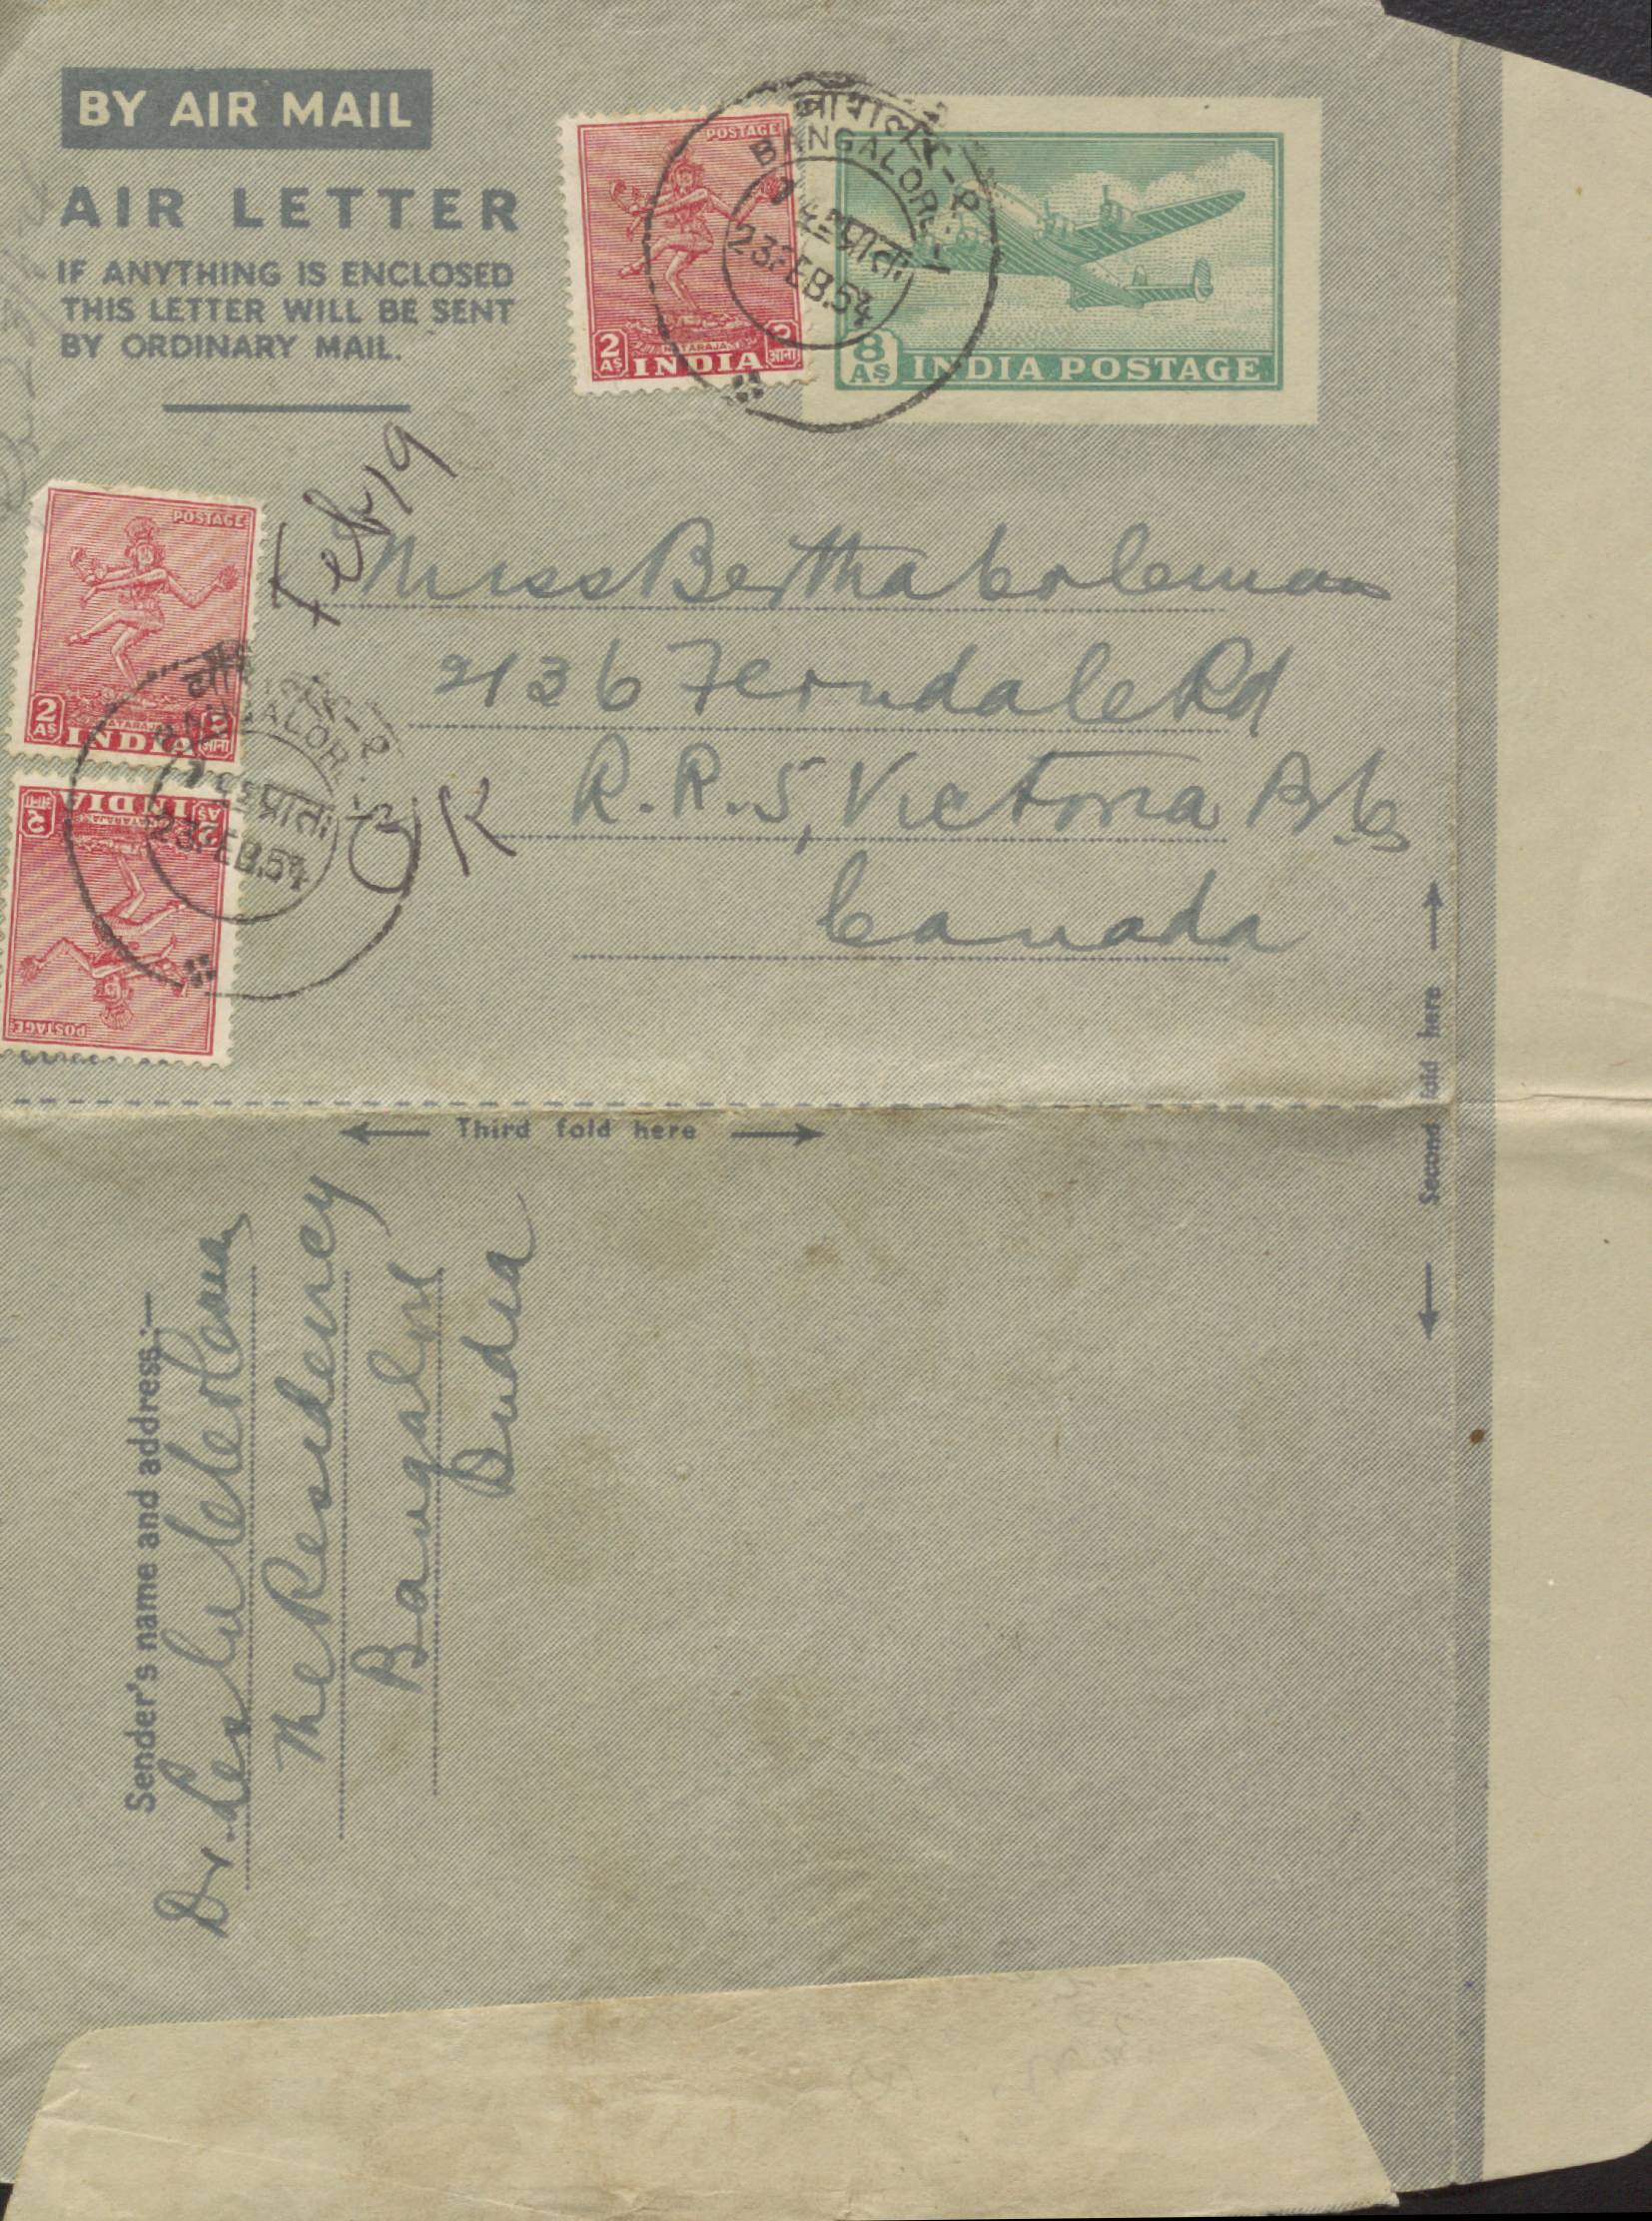 BY AIR MAIL
AIR LETTER
IF ANYTHING IS ENCLOSED
THIS LETTER WILL BE SENT
BY ORDINARY MAIL.
POSTAGE
NATARAJA
2 AS INDIA 2 आना
BANGALORE
प्रातः
23 FEB. 54
8 AS INDIA POSTAGE
Feb 19
Miss Bertha Coleman
2136 Ferndale Rd
R.R.5, Victoria B.C.
Canada
POSTAGE
NATARAJA
2 AS INDIA 2 आना
BANGALORE
प्रातः
23 FEB. 54
2 AS INDIA 2 आना
NATARAJA
POSTAGE
OK
Third fold here
Second fold here
Sender's name and address:—
Dr. Leslie Coleman
The Residency
Bangalore
India